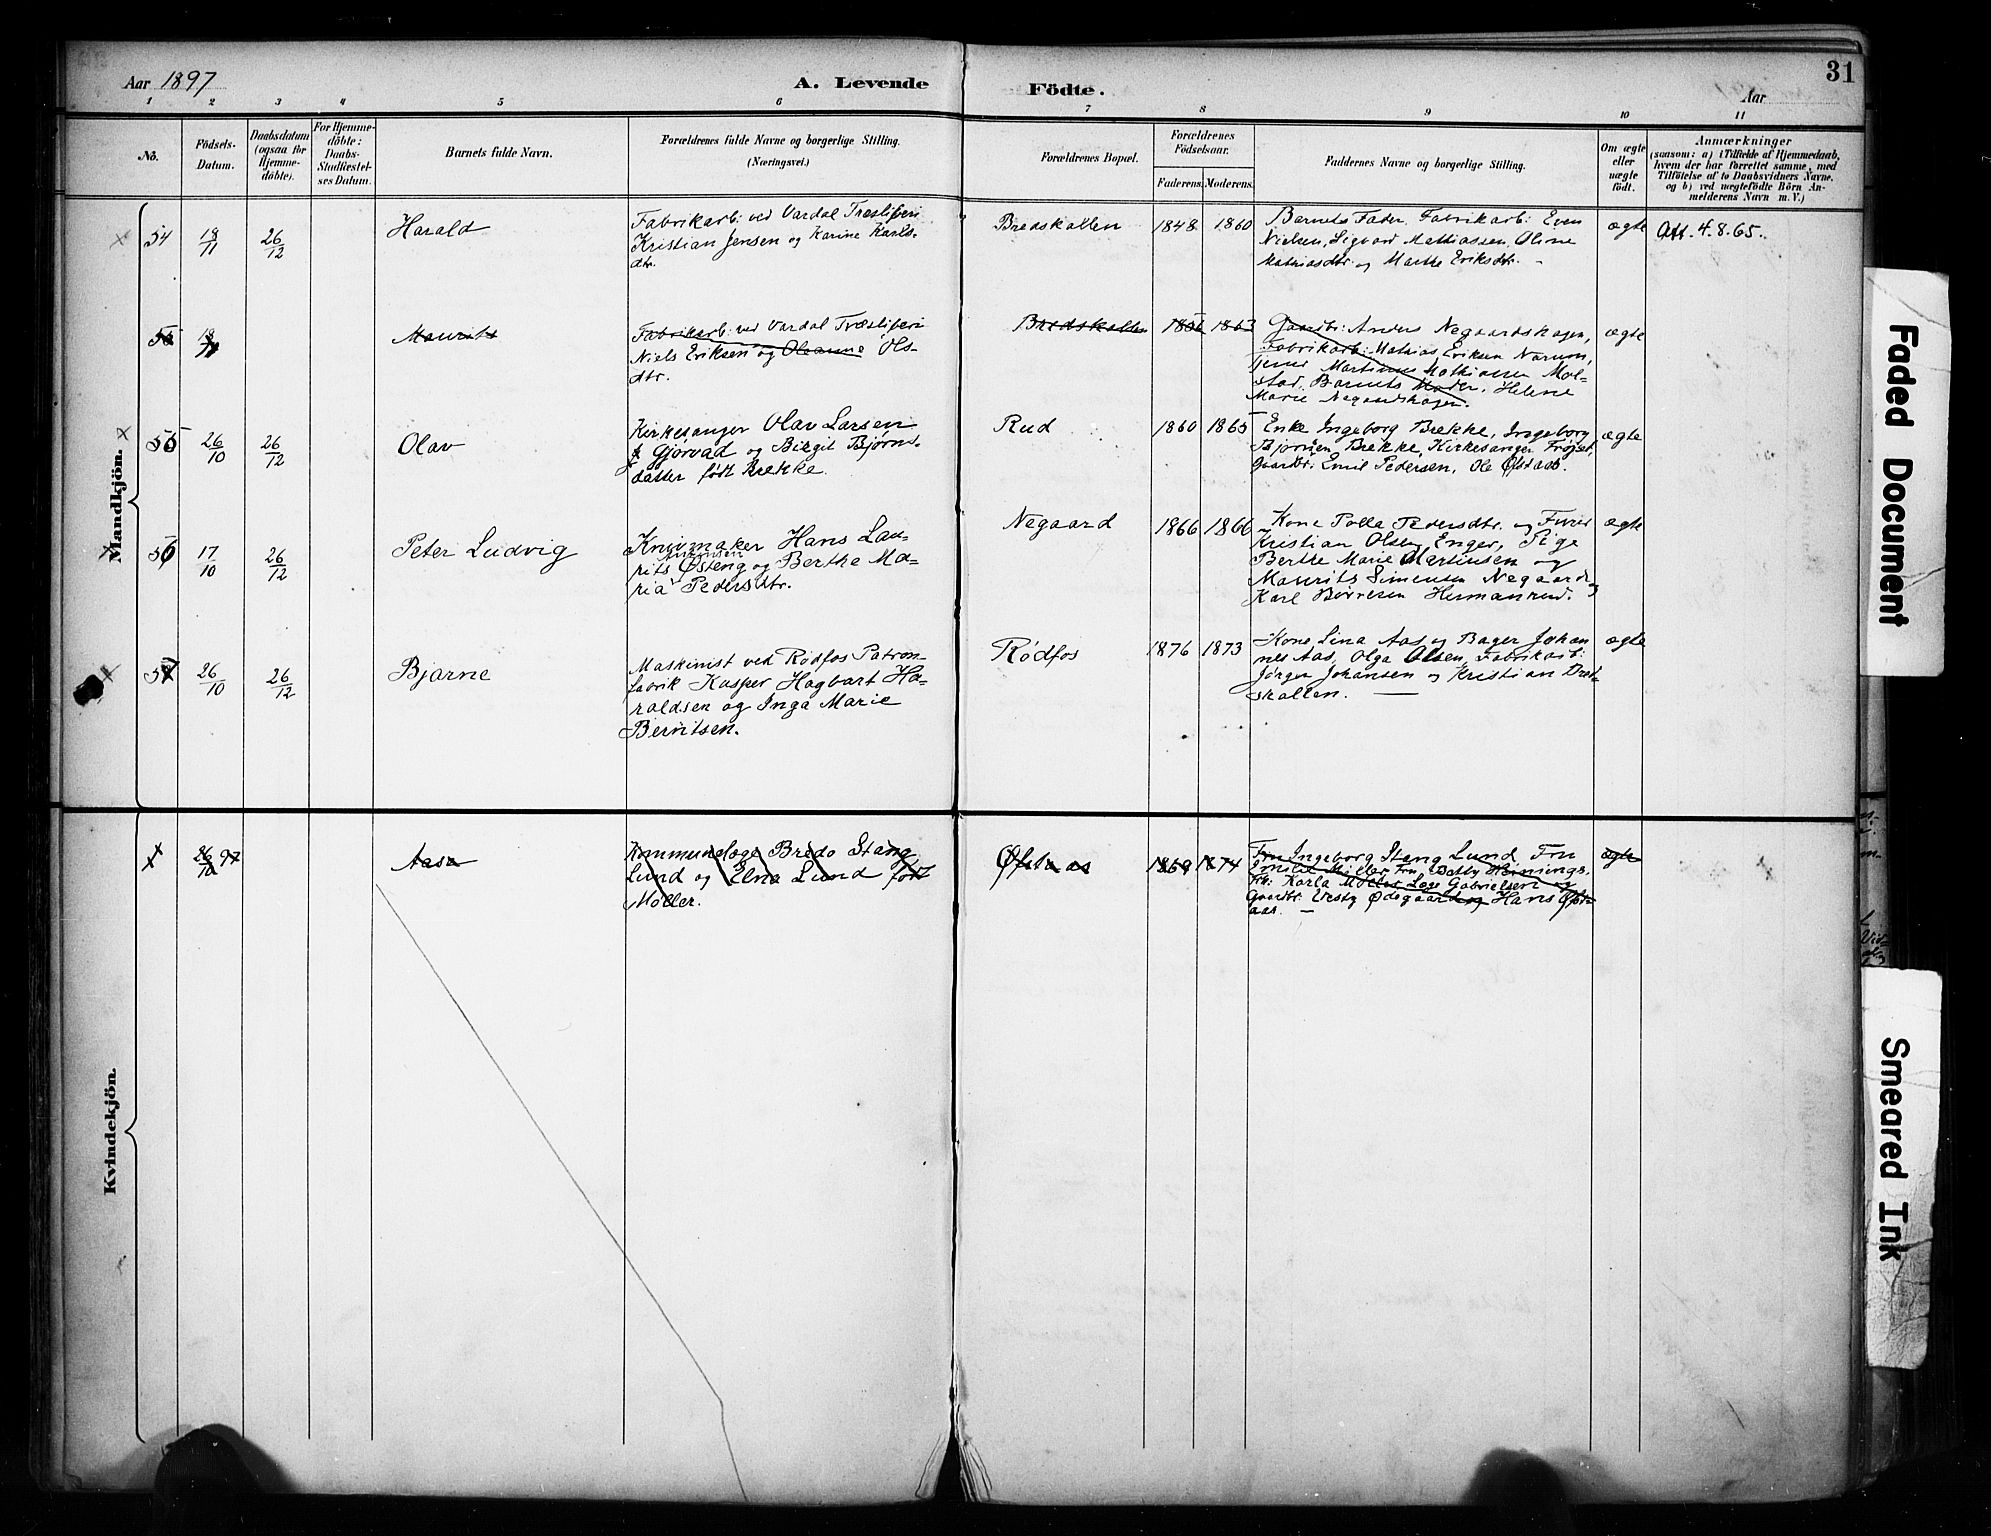 Aar 1897
A. Levende
Födte.
Aar
31
1 2 3 4 5 6 7 8 9 10 11
No.
Födsels-
Datum.
Daabsdatum
(ogsaa for
Hjemme-
döbte).
For Hjemme-
döbte:
Daabs-
Stadfæstel-
ses Datum.
Barnets fulde Navn.
Forældrenes fulde Navne og borgerlige Stilling.
(Næringsvei.)
Forældrenes Bopæl.
Forældrenes
Födselsaar.
Faderens.
Moderens.
Faddernes Navne og borgerlige Stilling.
Om ægte
eller
uægte
födt.
Anmærkninger
(saasom: a) i Tilfælde af Hjemmedaab,
hvem der har forrettet samme, med
Tilföielse af to Daabsvidners Navne,
og b) ved uægtefödte Börn An-
melderens Navn m. V.)
Mandkjön.
54
18/11
26/12
Harald
Fabrikarb: ved Vardal Træsliperi
Kristian Jensen og Karine Karls-
dtr.
Bredskallen
1848
1860
Barnets Fader, Fabrikarb: Even
Nielsen, Sigvard Mathiassen, Oline
Mathiasdtr. og Marthe Eriksdtr. -
ægte
Att. 4.8.65.
55
18/11
Maurits
Fabrikarb: ved Vardal Træsliperi
Niels Eriksen og Oleanne Ols-
dtr.
Bredskallen
1856
1863
Gaardbr: Anders Negaardshagen,
Fabrikarb: Mathias Eriksen Narum,
Tjener Martinus Mathiassen Mol-
stad, Barnets Moder, Helene
Marie Negaardshagen.
ægte
55
26/10
26/12
Olav
Kirkesanger Olav Larsen
Gjørvad og Birgit Bjørns-
datter født Brekke.
Rud
1860
1865
Enke Ingeborg Brekke, Ingeborg
Bjørnsen Brekke, Kirkesanger Frøiset,
Gaardbr: Emil Pedersen, Ole Øfstaas.
ægte
56
17/10
26/12
Peter Ludvig
Knivmaker Hans Lau-
rits Østeng og Berthe Ma-
ria Pedersdtr.
Negaard
1866
1866
Kone Polla Pedersdtr. og Furer
Kristian Olsen Enger, Pige
Berthe Marie Martinsen og
Maurits Simensen Negaard og
Karl Børresen Hermanrud.
ægte
57
26/10
26/12
Bjarne
Maskinist ved Rødfos Patron-
fabrik Kasper Hagbart Ha-
raldsen og Inga Marie
Berntsen.
Rødfos
1876
1873
Kone Lina Aas og Bager Johan
nes Aas, Olga Olsen, Fabrikarb:
Jørgen Johansen og Kristian Bred-
skallen. —
ægte
Kvindekjön.
26/10 97
Aase
Kommunelæge Bredo Stang
Lund og Elna Lund født
Møller.
Øfstaas
1869
1874
Fru Ingeborg Stang Lund, Fru
Emilie Møller, Fru Betty Hennings,
Frk: Karla Møller, Læge Gabrielsen og
Gaardbr. Ødegaard og Hans Øfst-
aas. —
ægte
Faded Document
Smeared Ink